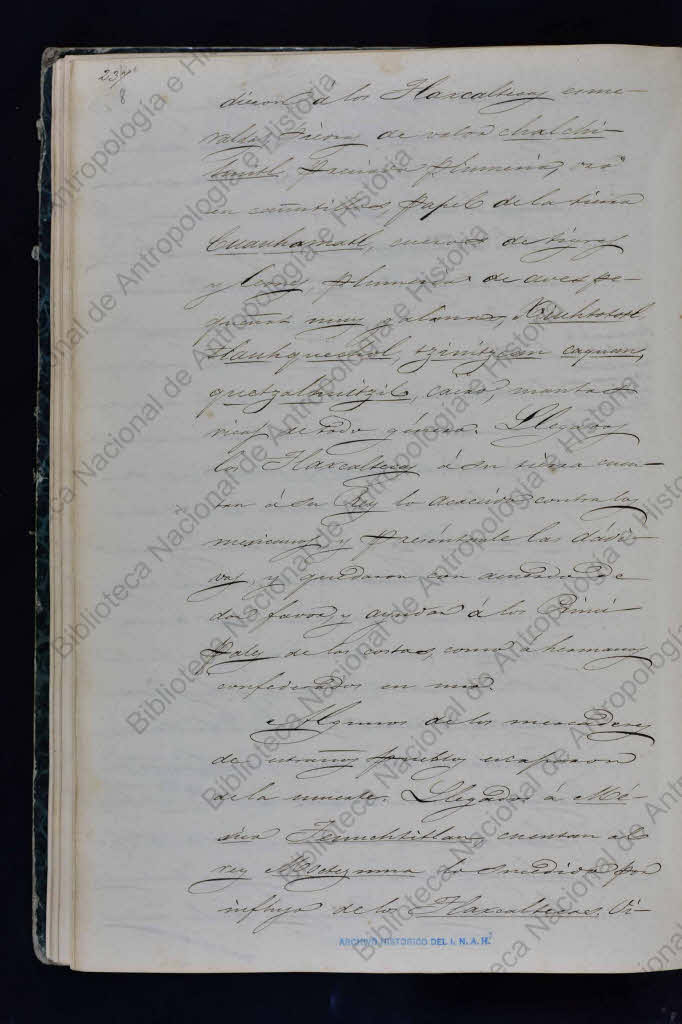 237
8
dieron á los Tlaxcaltecas esme-
raldas, piedras de valor chalchi-
huitl, preciosa plumería, oro
en cañutillos, papel de la tierra
Cuauhamatl, cueros de tigres
y leones, plumería de aves pe-
queñas muy galanas, Xiuhtototl
tlauhquechol, tzinitzcan caquan,
quetzalhuitzil, cacao, mantas
ricas de todo género. Llegados
los Tlaxcaltecas á su tierra cuen-
tan á su Rey lo acaecido contra los
mexicanos, y preséntanle las dádi-
vas, y quedaron con acuerdo de
dar favor, y ayudar á los Princi
pales de las costas, como á hermanos
confederados en uno.
Algunos de los mercaderes
de extraños pueblos escaparon
de la muerte. Llegados á Mé-
xico Tenuchtitlan, cuentan al
rey Moctezuma lo sucedido por
influjo de los Tlaxcaltecas. Vi-
ARCHIVO HISTORICO DEL I. N. A. H.
Biblioteca Nacional de Antropología e Historia